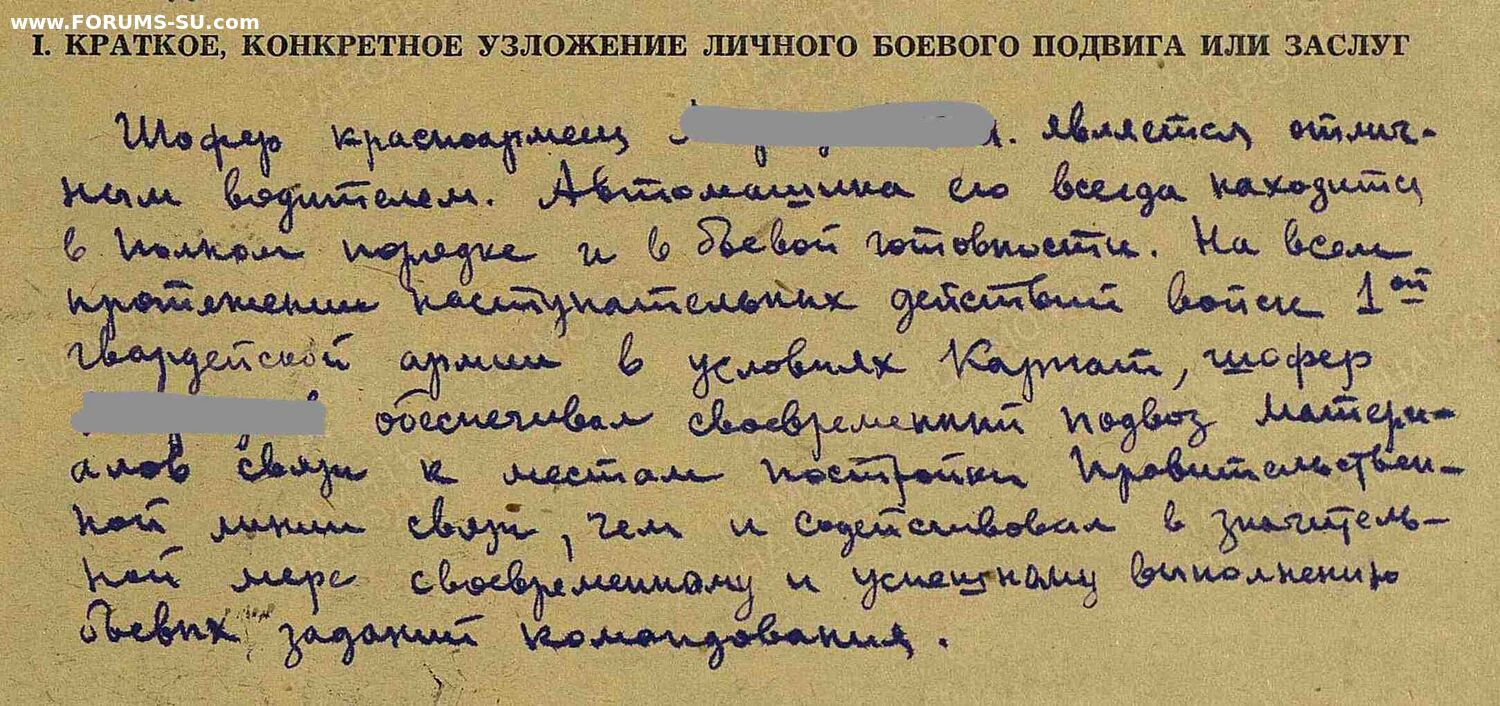 www.FORUMS-SU.com
I. КРАТКОЕ, КОНКРЕТНОЕ УЗЛОЖЕНИЕ ЛИЧНОГО БОЕВОГО ПОДВИГА ИЛИ ЗАСЛУГ
Шофер красноармеец является отлич-
ным водителем. Автомашина его всегда находится
в полном порядке и в боевой готовности. На всем
протяжении наступательных действий войск 1ой
гвардейской армии в условиях Карпат, шофер
обеспечивал своевременный подвоз матери-
алов связи к местам постройки Правительствен-
ной линии связи, чем и содействовал в значитель-
ной мере своевременному и успешному выполнению
боевых заданий командования.